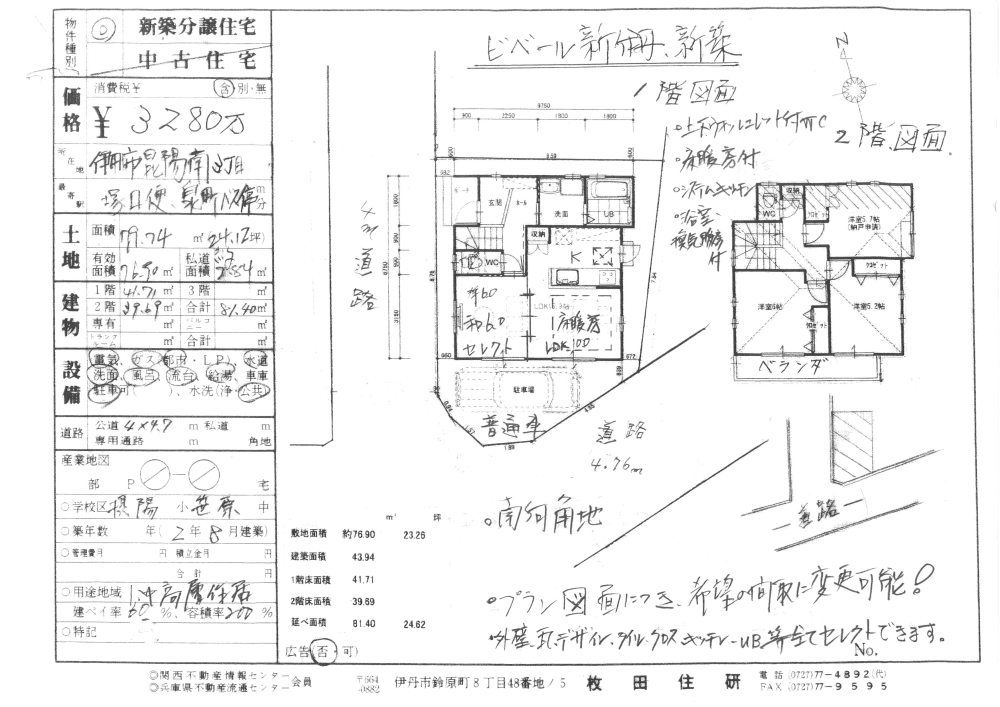 物件種別
新築分譲住宅
中古住宅
価格
消費税¥ 含 別・無
¥ 3280万
所在地
伊丹市昆陽南3丁目
最寄駅
塚口便、
土地
面積 79.74 ㎡ 24.12坪)
有効面積 76.90 ㎡ 私道面積 2.84 ㎡
建物
1階 41.71 ㎡ 3階 ㎡
2階 39.69 ㎡ 合計 81.40㎡
専有 ㎡ バルコニー ㎡
トランクルーム ㎡ 合計 ㎡
設備
電気、ガス(都市・LP)、水道
洗面、風呂、流台、給湯、車庫
駐車可( )、水洗(浄・公共)
道路
公道 4×4.7 m 私道 m
専用通路 m 角地
産業地図
部 P ― 宅
○学校区 摂陽 小 笹原 中
○築年数 年( 2 年 8 月建築)
○管理費月 円 積立金月 円
合計 円
○用途地域 中高層住居
建ペイ率 60 %、容積率 200 %
○特記
ビベール新伊丹、新築
1階図面
2階図面
N
。床暖房付
。システムキッチン
。浴室換気乾燥付
9750
900 2250 1800 1800
8.59
4m道路
ポーチ
玄関
ホール
洗面
UB
収納
WC
K
洋6.0
和6.0
セレクト
LDK
床暖房
LDK
駐車場
普通車
道路
4.76m
WC
収納
クロゼット
洋室5.7帖
(納戸申請)
洋室6帖
クロゼット
クロゼット
洋室5.2帖
ベランダ
道路
。南向角地
㎡ 坪
敷地面積 約76.90 23.26
建築面積 43.94
1階床面積 41.71
2階床面積 39.69
延べ面積 81.40 24.62
。プラン図面につき、希望の間取に変更可能!
。外壁、瓦、デザイン、タイル、クロス、キッチン、UB、等全てセレクトできます。
No.
広告(否)可)
◎関西不動産情報センター
◎兵庫県不動産流通センター
会員
〒664-0882
伊丹市鈴原町8丁目48番地ノ5 枚田住研
電話 (0727)77-4892(代)
FAX (0727)77-9595